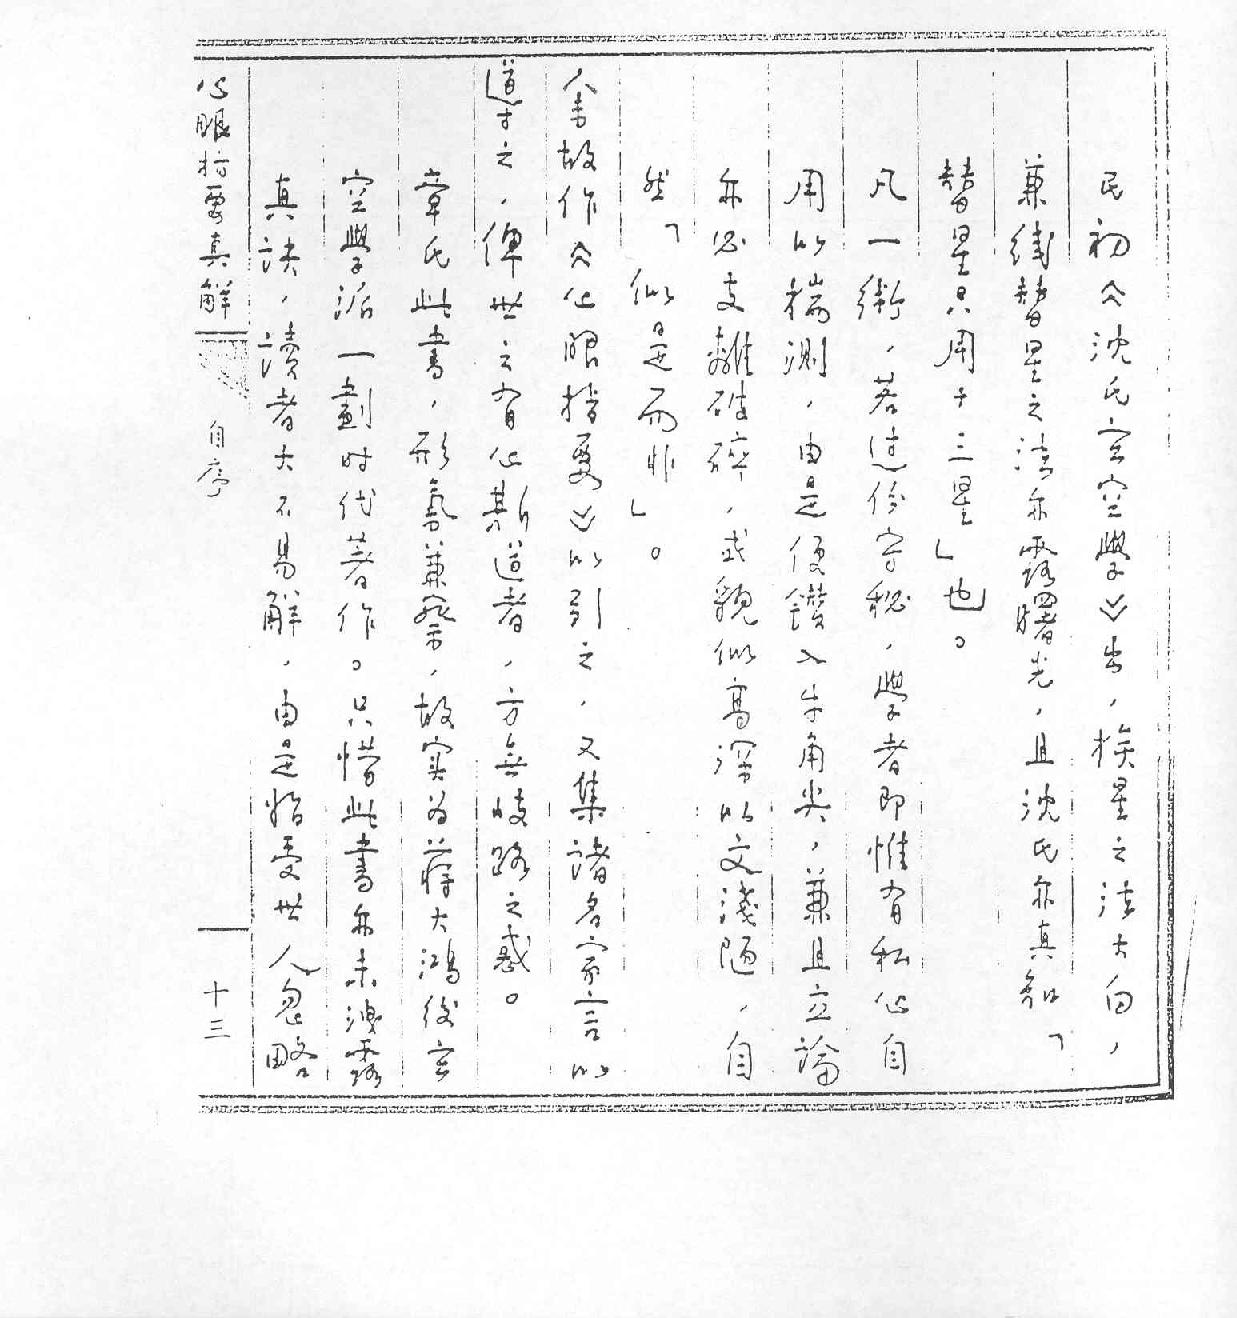 民初《沈氏玄空學》出，挨星之法大白，
兼綫替星之法亦露曙光，且沈氏亦真知「
替星只用于三星」也。
凡一術，若過份守秘，學者即惟有私心自
用以揣測，由是便鑽入牛角尖，兼且立論
亦必支離破碎，或貌似高深以文淺陋，自
然「似是而非」。
余故作《心眼指要》以引之，又集諸名家言以
導之，俾世之有心斯道者，方無歧路之惑。
章氏此書，形氣兼察，故实为蔣大鴻後玄
空學派一劃时代著作。只惜此書亦未洩露
真訣，讀者大不易解，由是招受世人忽略
心眼指要真解
自序
十三